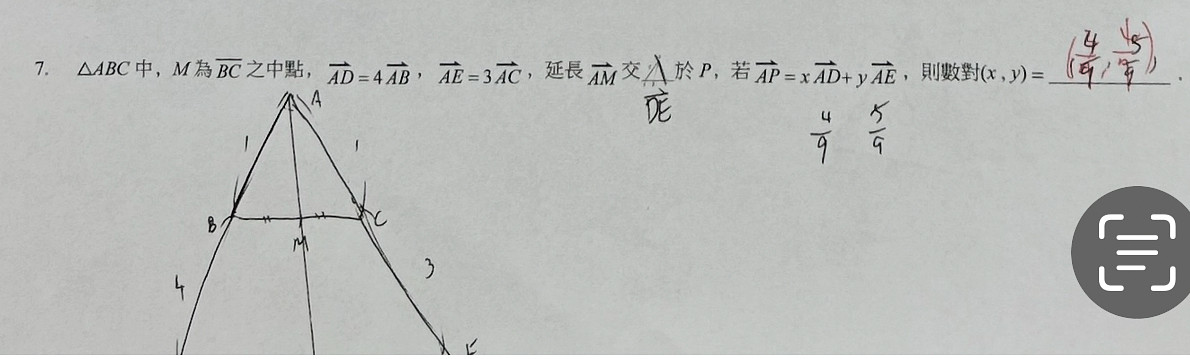 7. △ABC 中，M 為 BC 之中點，AD = 4 AB，AE = 3 AC，延長 AM 交 於 P，若 AP = x AD + y AE，則數對(x , y) = (4/9, 5/9).
DE
4/9 5/9
A
1 1
B C
M
4 3
E